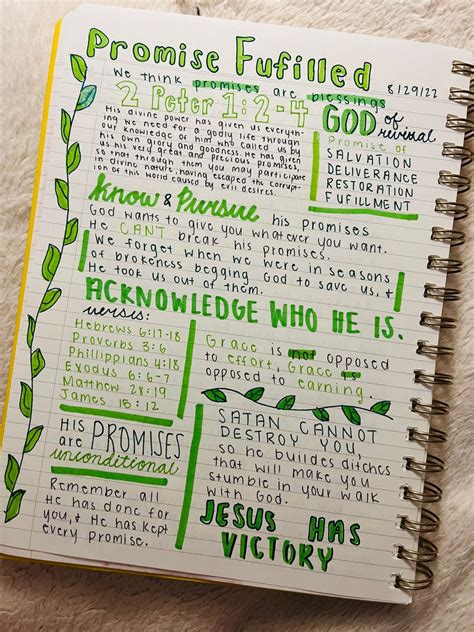 Promise Fufilled
8/29/22
We think promises are blessings
2 Peter 1:2-4
His divine power has given us everyth-
ing we need for a godly life through
our knowledge of him who called us by
his own glory and goodness. He has given
us his very great and precious promises,
so that through them you may participate
in divine nature, having escaped the corrupt-
ion of this world caused by evil desires.
GOD of
revival
Promise of
SALVATION
DELIVERANCE
RESTORATION
FUFILLMENT
Know & Pursue his promises
God wants to give you whatever you want.
He CAN'T break his promises.
We forget when we were in seasons
of brokeness begging God to save us, &
He took us out of them.
ACKNOWLEDGE WHO HE IS.
verses:
Hebrews 6:17-18
Proverbs 3:6
Phillippians 4:18
Exodus 6:6-7
Matthew 28:19
James 15:12
Grace is not opposed
to effort, Grace is
opposed to earning.
HIS PROMISES
are
unconditional
Remember all
He has done for
you, & He has kept
every promise.
SATAN CANNOT
DESTROY YOU,
so he buildes ditches
that will make you
stumble in your walk
with God.
JESUS HAS
VICTORY